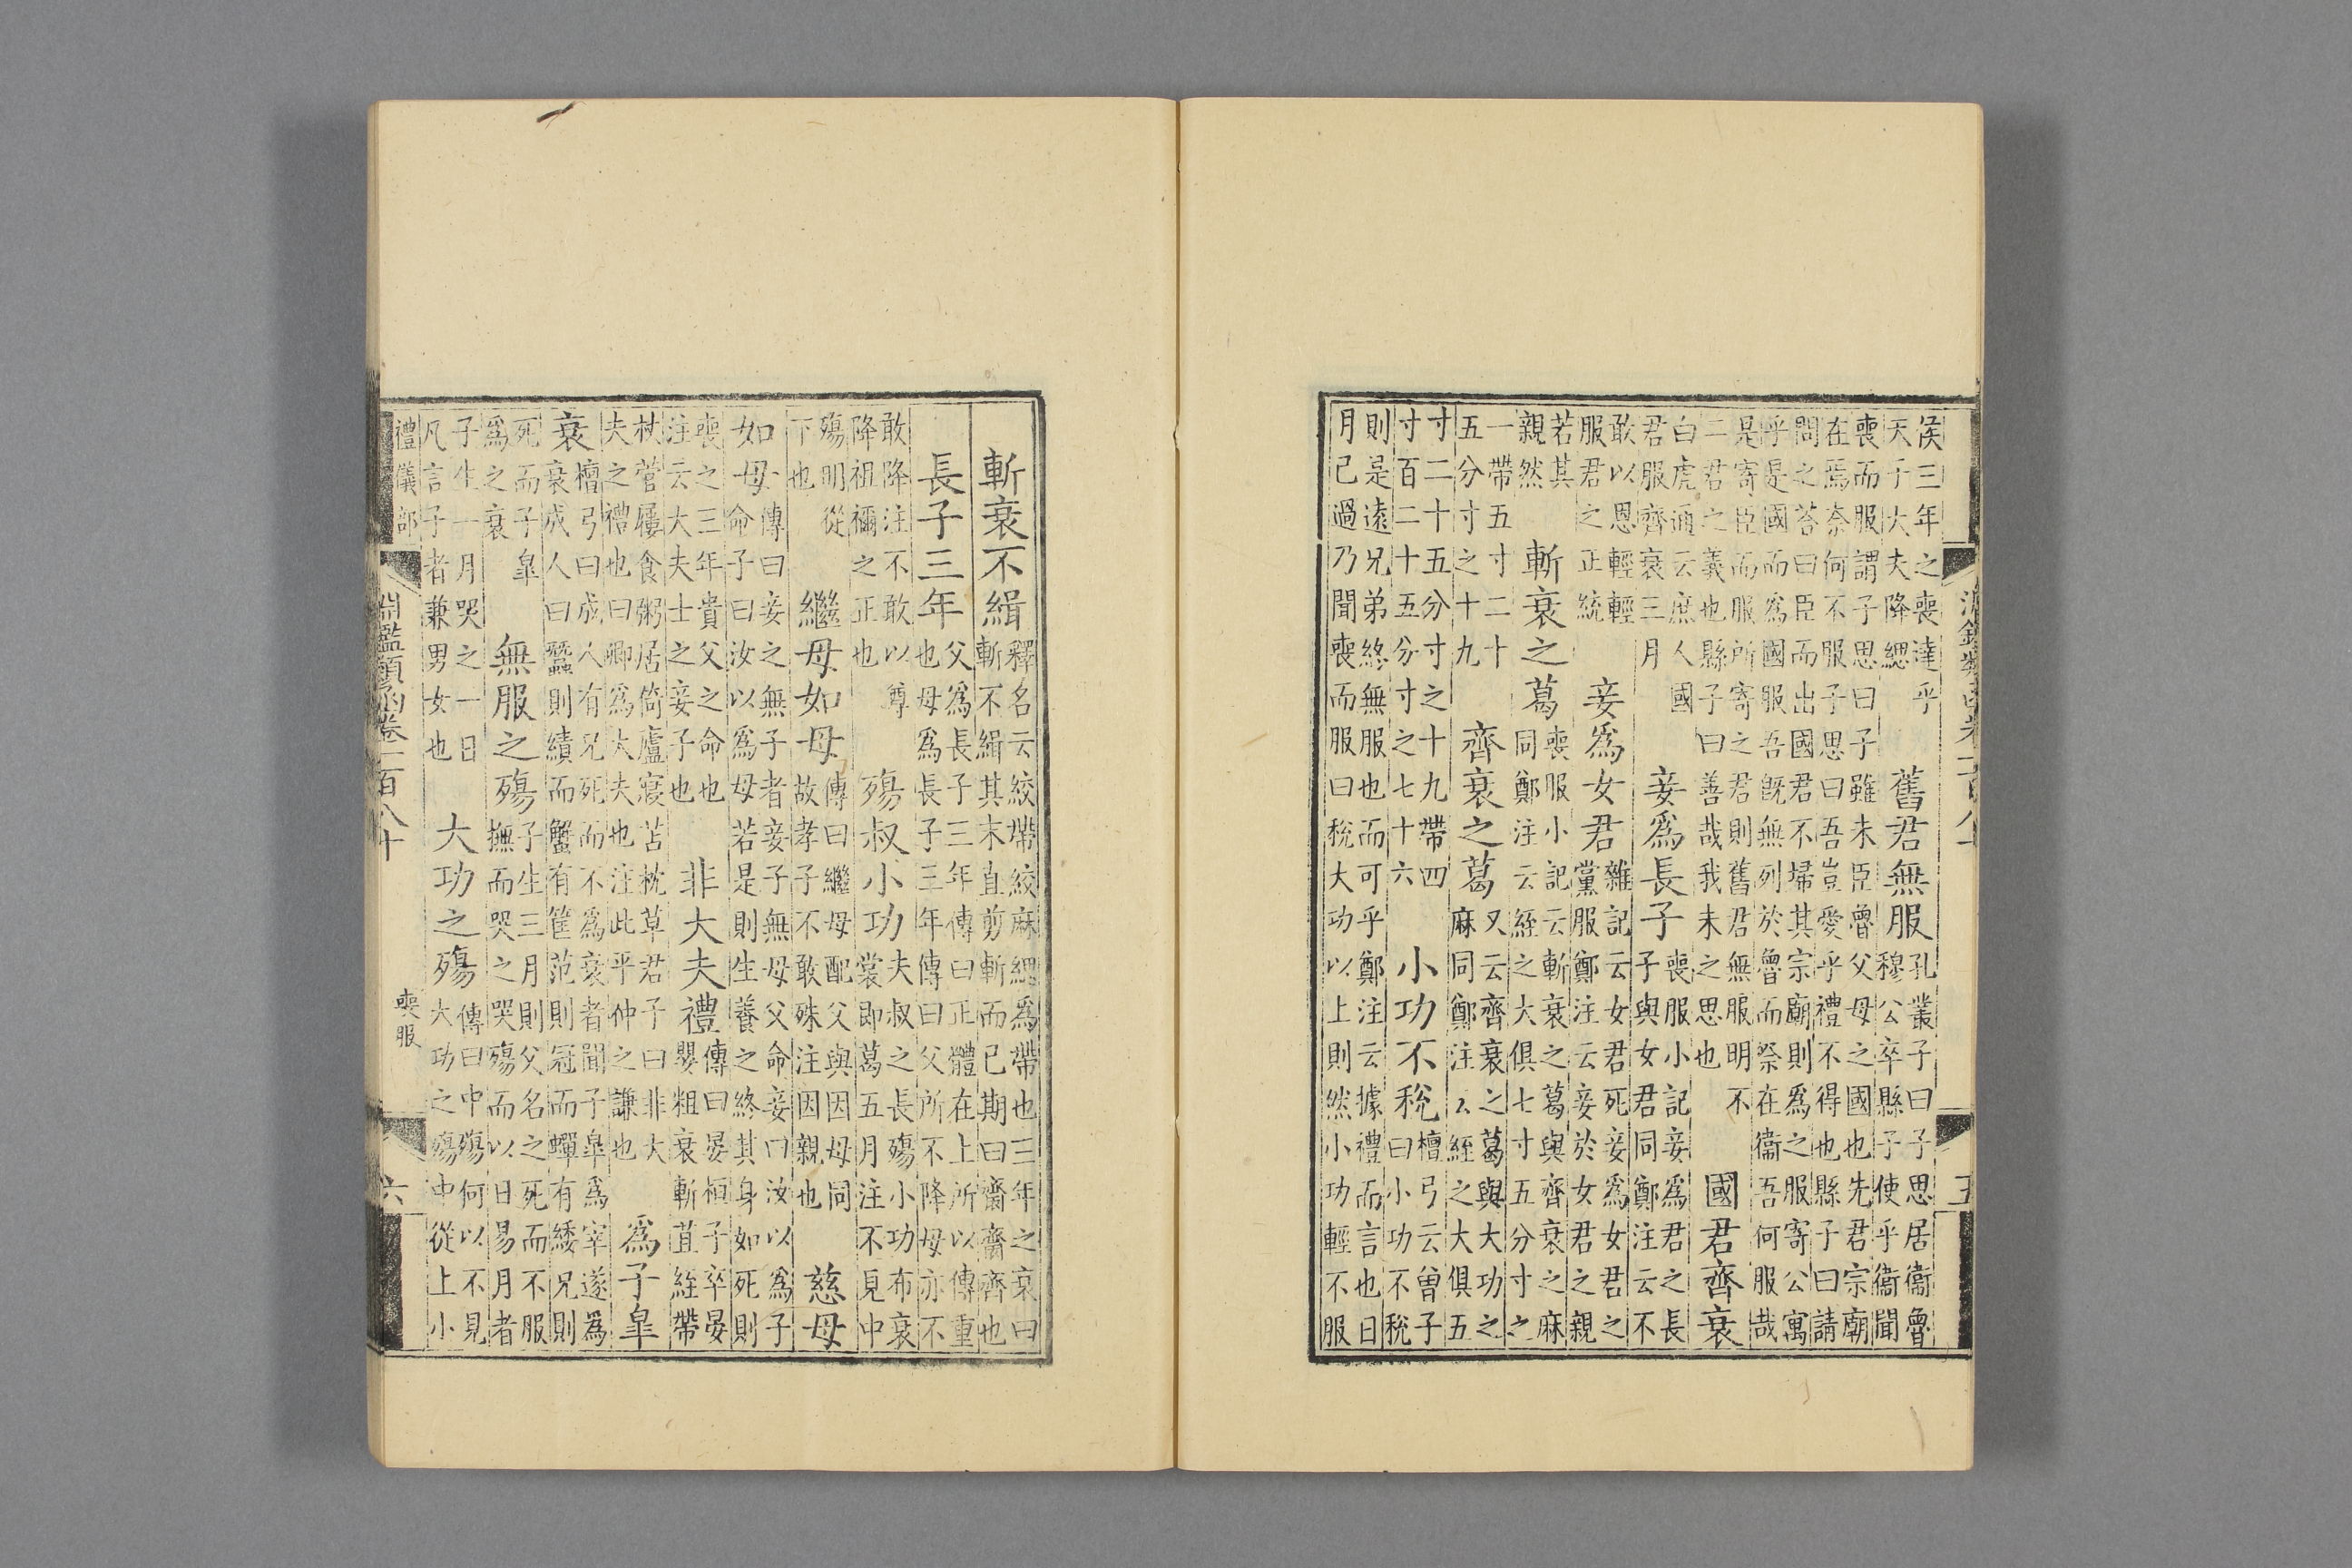 侯三年之喪達乎
天子大夫降緦
舊君無服
孔叢子曰子思居衞魯
穆公卒縣子使乎衞聞
喪而服謂子思曰子雖未臣魯父母之國也先君宗廟
在焉奈何不服子思曰吾豈愛乎禮不得也縣子曰請
問之荅曰臣而出國君不埽其宗廟則爲之服寄公寓
乎是國而爲國服吾既無列於魯而祭在衞吾何服哉
是寄臣而服所寄之君則舊君無服明不
二君之義也縣子曰善哉我未之思也
國君齊衰
白虎通云庶人國
君服齊衰三月
妾爲長子
喪服小記妾爲君之長
子與女君同鄭注云不
敢以恩輕輕
服君之正統
妾爲女君
雜記云女君死妾爲女君之
黨服鄭注云妾於女君之親
若其
親然
斬衰之葛
喪服小記云斬衰之葛與齊衰之麻
同鄭注云絰之大俱七寸五分寸之
一帶五寸二十
五分寸之十九
齊衰之葛
又云齊衰之葛與大功之
麻同鄭注云絰之大俱五
寸二十五分寸之十九帶四
寸百二十五分寸之七十六
小功不稅
檀弓云曾子
曰小功不稅
則是遠兄弟終無服也而可乎鄭注云據禮而言也日
月已過乃聞喪而服曰稅大功以上則然小功輕不服
斬衰不緝
釋名云絞帶絞麻緦爲帶也三年之衰曰
斬不緝其末直剪斬而已期曰齋齋齊也
長子三年
父爲長子三年傳曰正體在上所以傳重
也母爲長子三年傳曰父所不降母亦不
敢降注不敢以尊
降祖禰之正也
殤叔小功
夫叔之長殤小功布衰
裳即葛五月注不見中
殤明從
下也
繼母如母
傳曰繼母配父與因母同
故孝子不敢殊注因親也
慈母
如母
傳曰妾之無子者妾子無母父命妾曰汝以爲子
命子曰汝以爲母若是則生養之終其身如死則
喪之三年貴父之命也
注云大夫士之妾子也
非大夫禮
傳曰晏桓子卒晏
嬰粗衰斬苴絰帶
杖菅屨食粥居倚廬寢苫枕草君子曰非大
夫之禮也曰卿爲大夫也注此平仲之謙也
爲子皐
衰
檀弓曰成人有兄死而不爲衰者聞子皐爲宰遂爲
衰成人曰蠶則績而蟹有筐范則冠而蟬有緌兄則
死而子皐
爲之衰
無服之殤
子生三月則父名之死而不服
撫而哭之哭殤而以日易月者
子生一月哭之一日
凡言子者兼男女也
大功之殤
傳曰中殤何以不見
大功之殤中從上小
禮儀部
淵鑑類函卷一百八十
喪服
六